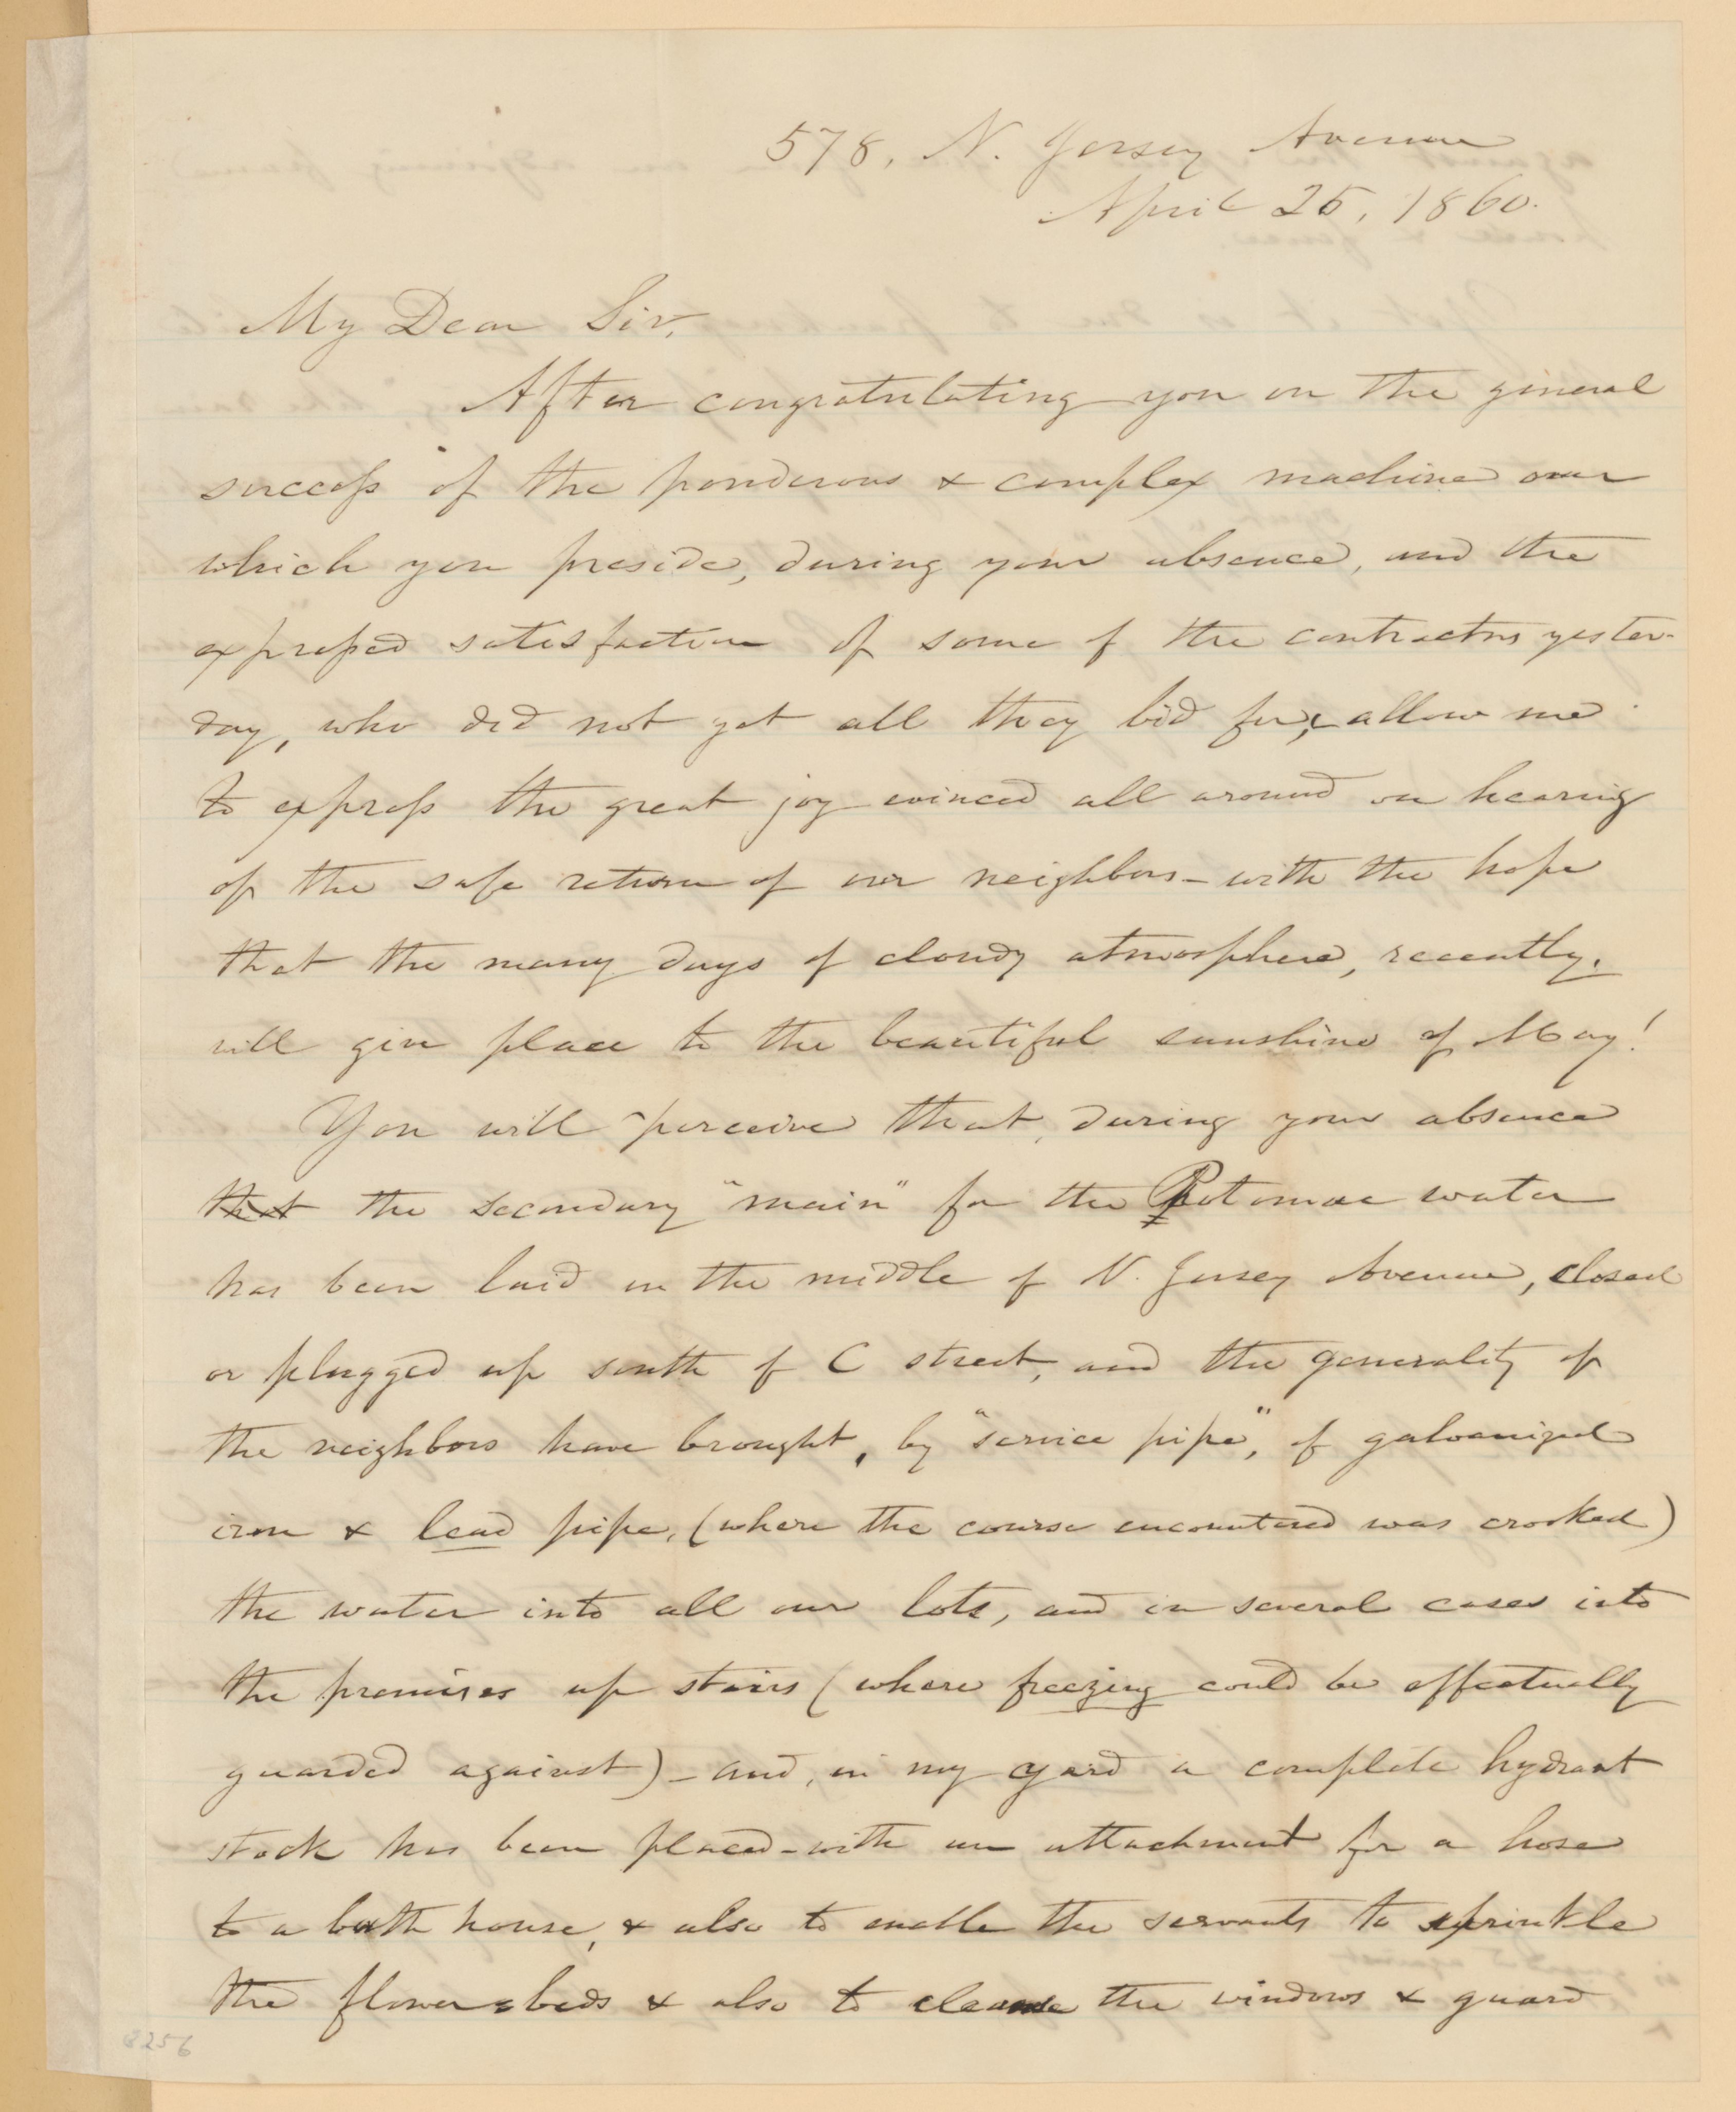 578, N. Jersey Avenue
April 25, 1860.
My Dear Sir,
After congratulating you on the general
success of the ponderous & complex machine over
which you preside, during your absence, and the
expressed satisfaction of some of the contractors yester-
day, who did not get all they bid for, allow me
to express the great joy evinced all around on hearing
of the safe return of our neighbors - with the hope
that the many days of cloudy atmosphere, recently,
will give place to the beautiful sunshine of May!
You will perceive that, during your absence
that the secondary "main" for the Potomac water
has been laid in the middle of N. Jersey Avenue, closed
or plugged up south of C street, and the generality of
the neighbors have brought, by "service pipe", of galvanized
iron & lead pipe, (where the course encountered was crooked)
the water into all our lots, and in several cases into
the premises up stairs (where freezing could be effectually
guarded against) - and, in my yard a complete hydrant
stock has been placed - with an attachment for a hose
to a bath house, & also to enable the servants to sprinkle
the flower beds & also to cleanse the windows & guard
8256